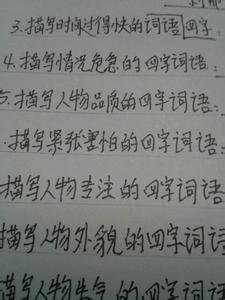 3.描写时间过得快的词语四字
4.描写情况危急的四字词语：
5.描写人物品质的四字词语：
.描写紧张害怕的四字词语：
描写人物专注的四字词语
描写人物外貌的四字词语
描写人物生气的四字词语